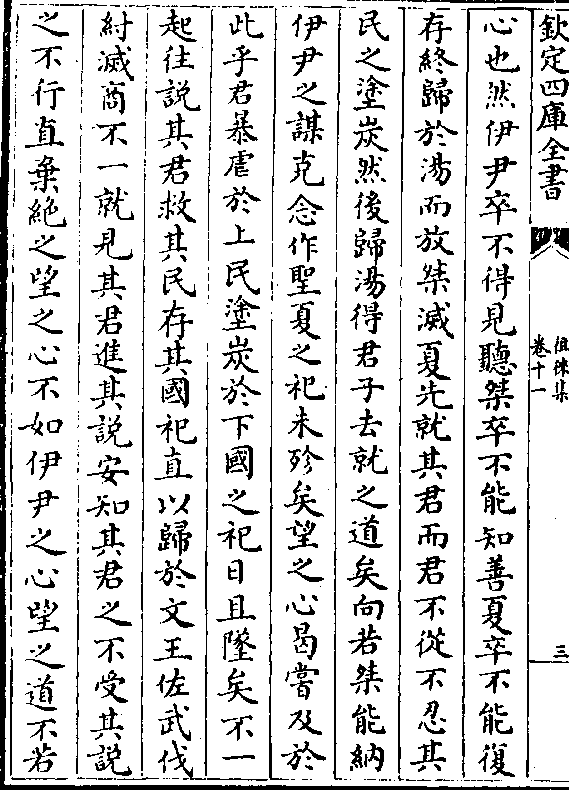 欽定四庫全書
徂徠集
卷十一
三
心也然伊尹卒不得見聽桀卒不能知善夏卒不能復
存終歸於湯而放桀滅夏先就其君而君不從不忍其
民之塗炭然後歸湯得君子去就之道矣向若桀能納
伊尹之謀克念作聖夏之祀未殄矣望之心曷嘗及於
此乎君暴虐於上民塗炭於下國之祀日且墜矣不一
起往說其君救其民存其國祀直以歸於文王佐武伐
紂滅商不一就見其君進其說安知其君之不受其說
之不行直棄絶之望之心不如伊尹之心望之道不若